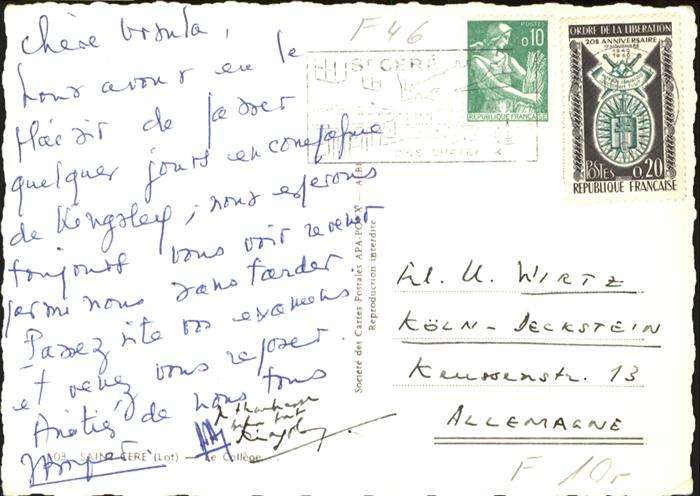 Chère Ursula,
nous avons eu le
plaisir de passer
quelques jours en compagnie
de Kingsley; nous espérons
toujours vous voir revenir
parmi nous sans tarder.
Passez vite vos examens.
et venez vous reposer.
Amitiés de nous tous
F 46
ST CÉRÉ
POSTES
0,10
REPUBLIQUE FRANÇAISE
ORDRE DE LA LIBERATION
20E ANNIVERSAIRE
17 NOVEMBRE
1940
1960
POSTES 0,20
REPUBLIQUE FRANÇAISE
Société des Cartes Postales APA-POUX — ALBI
Reproduction interdite
Frl. U. WIRTZ
KÖLN-DECKSTEIN
Keussenstr. 13
ALLEMAGNE
SAINT-CÉRÉ (Lot) — Le Collège
F 10,-